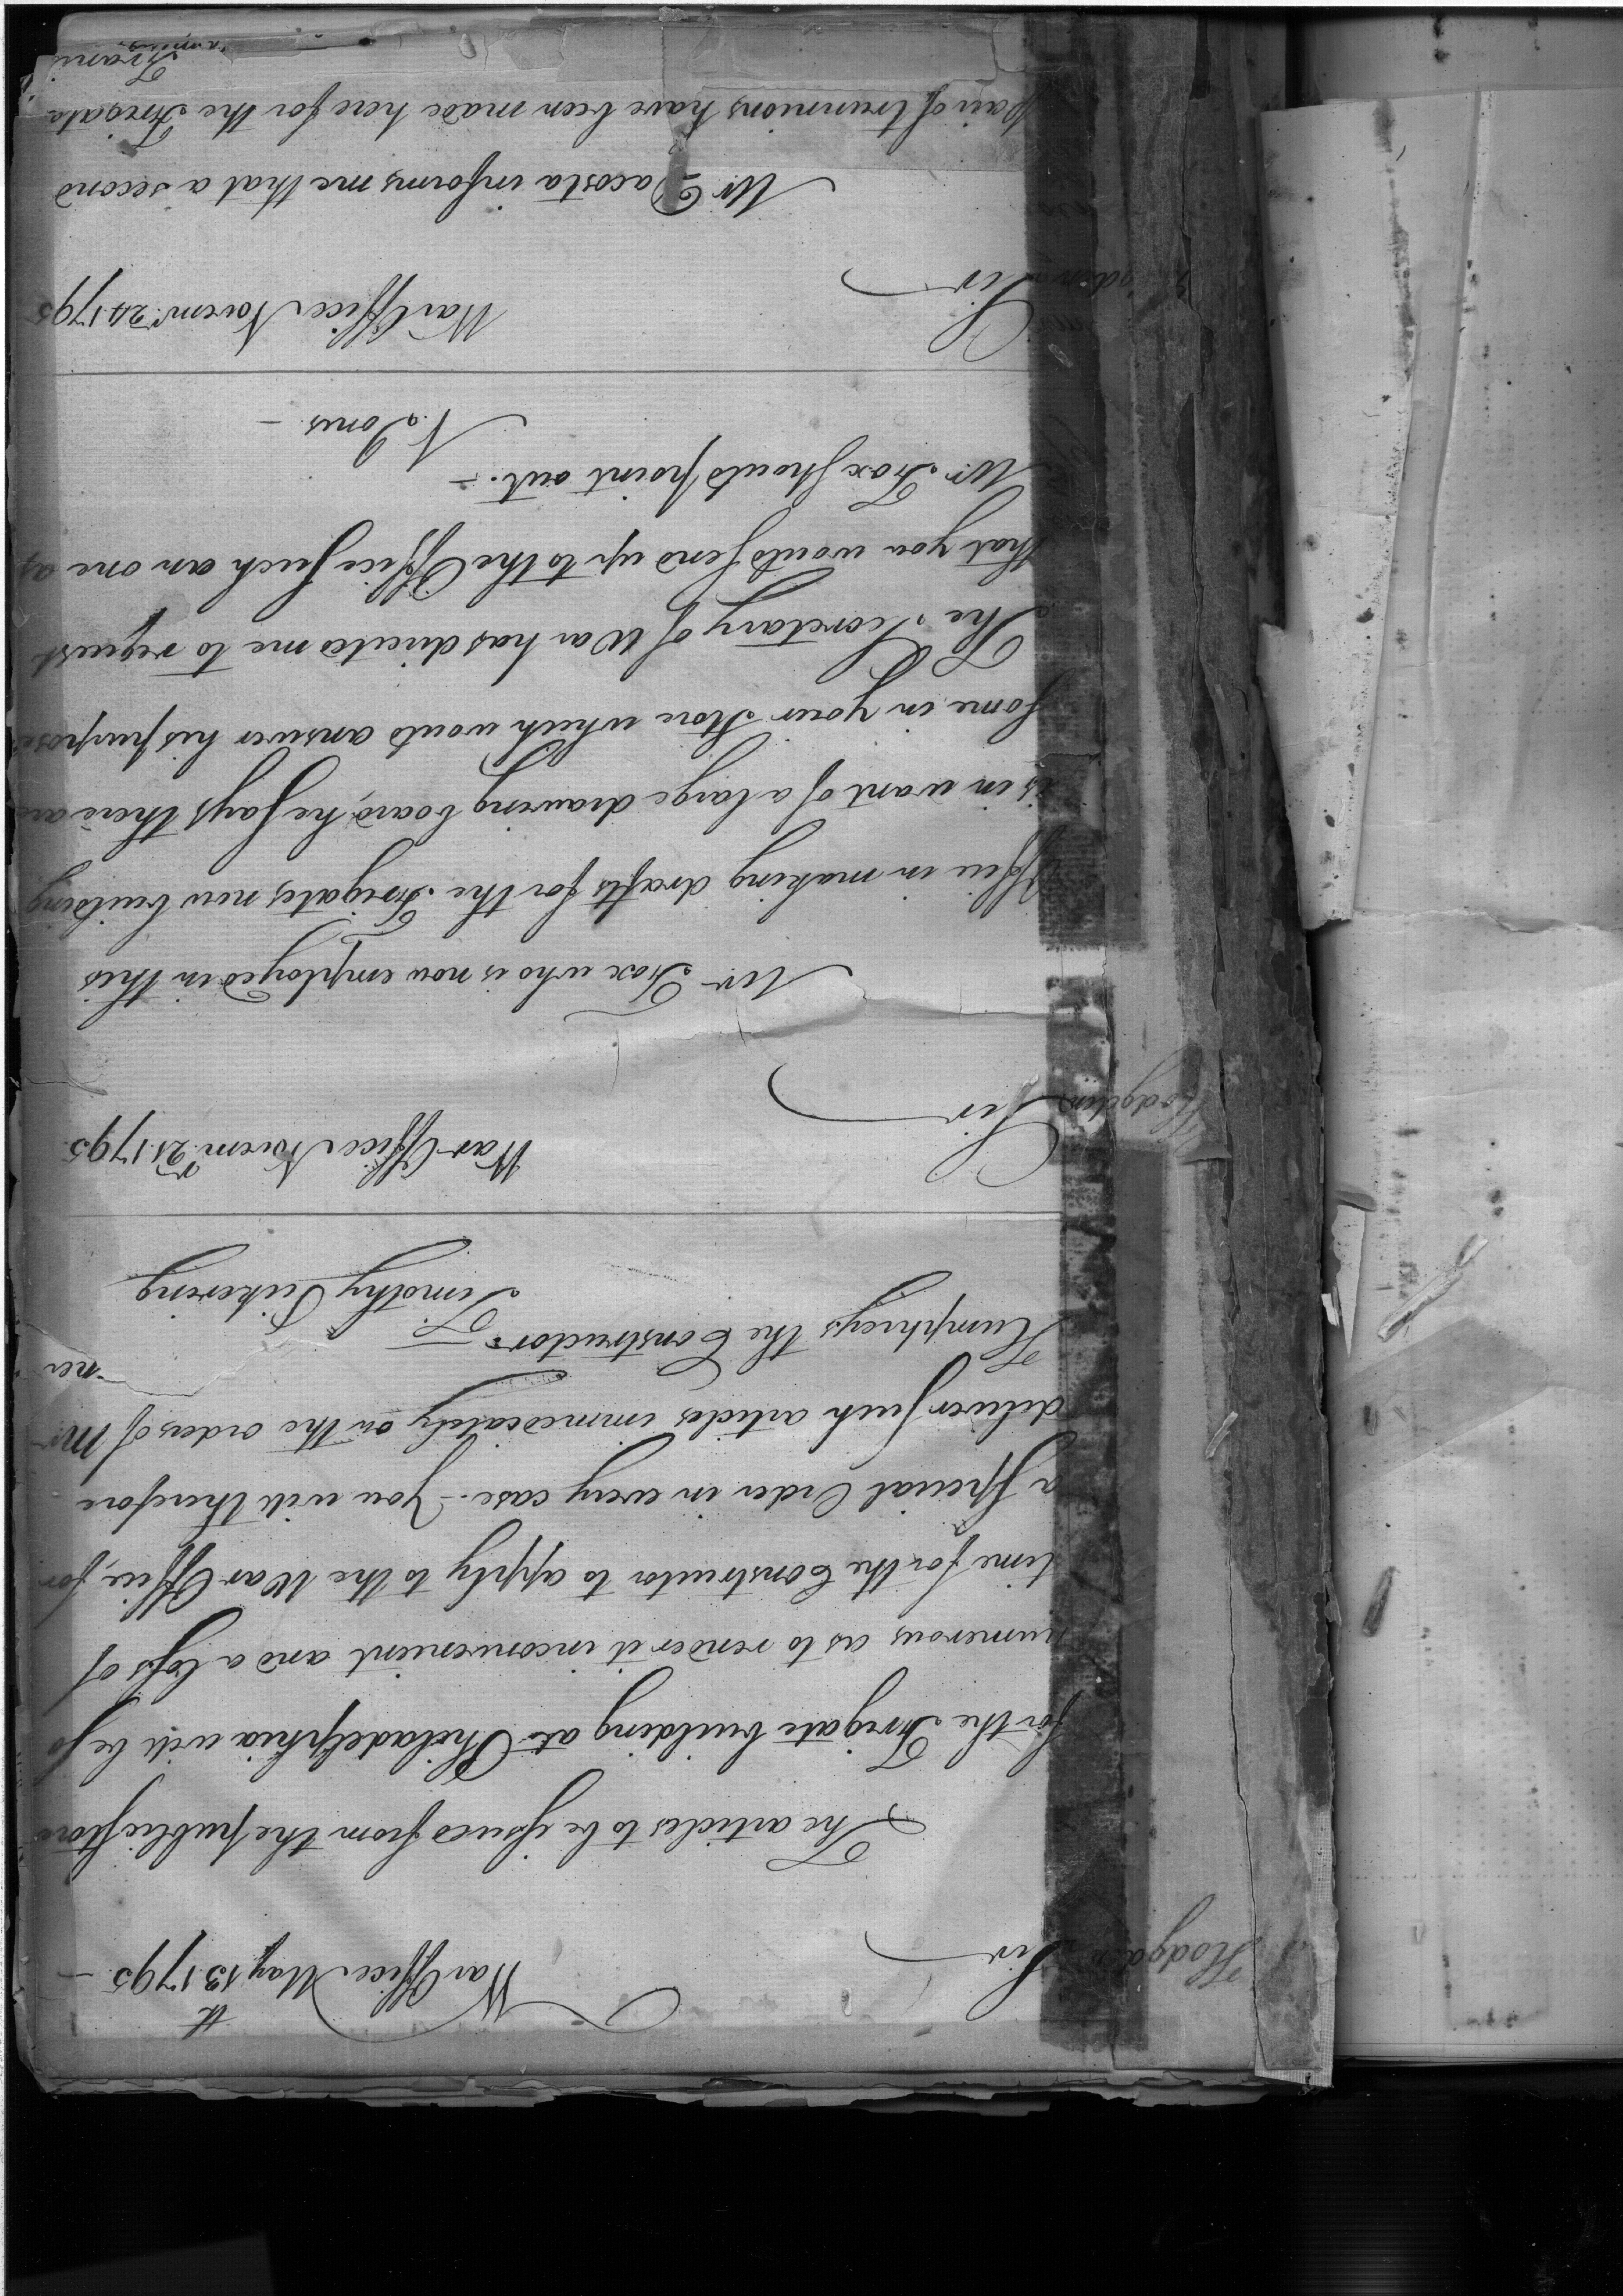 War Office May 13th 1795 —
Hodgdon Sir
The articles to be issued from the public store
for the Frigate building at Philadelphia will be so
numerous as to render it inconvenient and a loss of
time for the Constructor to apply to the War Office, for
a special Order in every case. - You will therefore
deliver such articles immediately on the orders of Mr
Humphreys the Constructor.
Timothy Pickering
War Office Novemr 21 1795
Hodgdon Sir
Mr Fox who is now employed in this
Office in making drafts for the Frigates now building
is in want of a large drawing board, he says there are
some in your Store which would answer his purpose
The Secretary of War has directed me to request
that you would send up to the Office such an one as
Mr. Fox should point out. -
N. Jones -
War Office Novemr 24 1795
Sir
Mr Dacosta informs me that a second
pair of trunnions have been made here for the Frigate